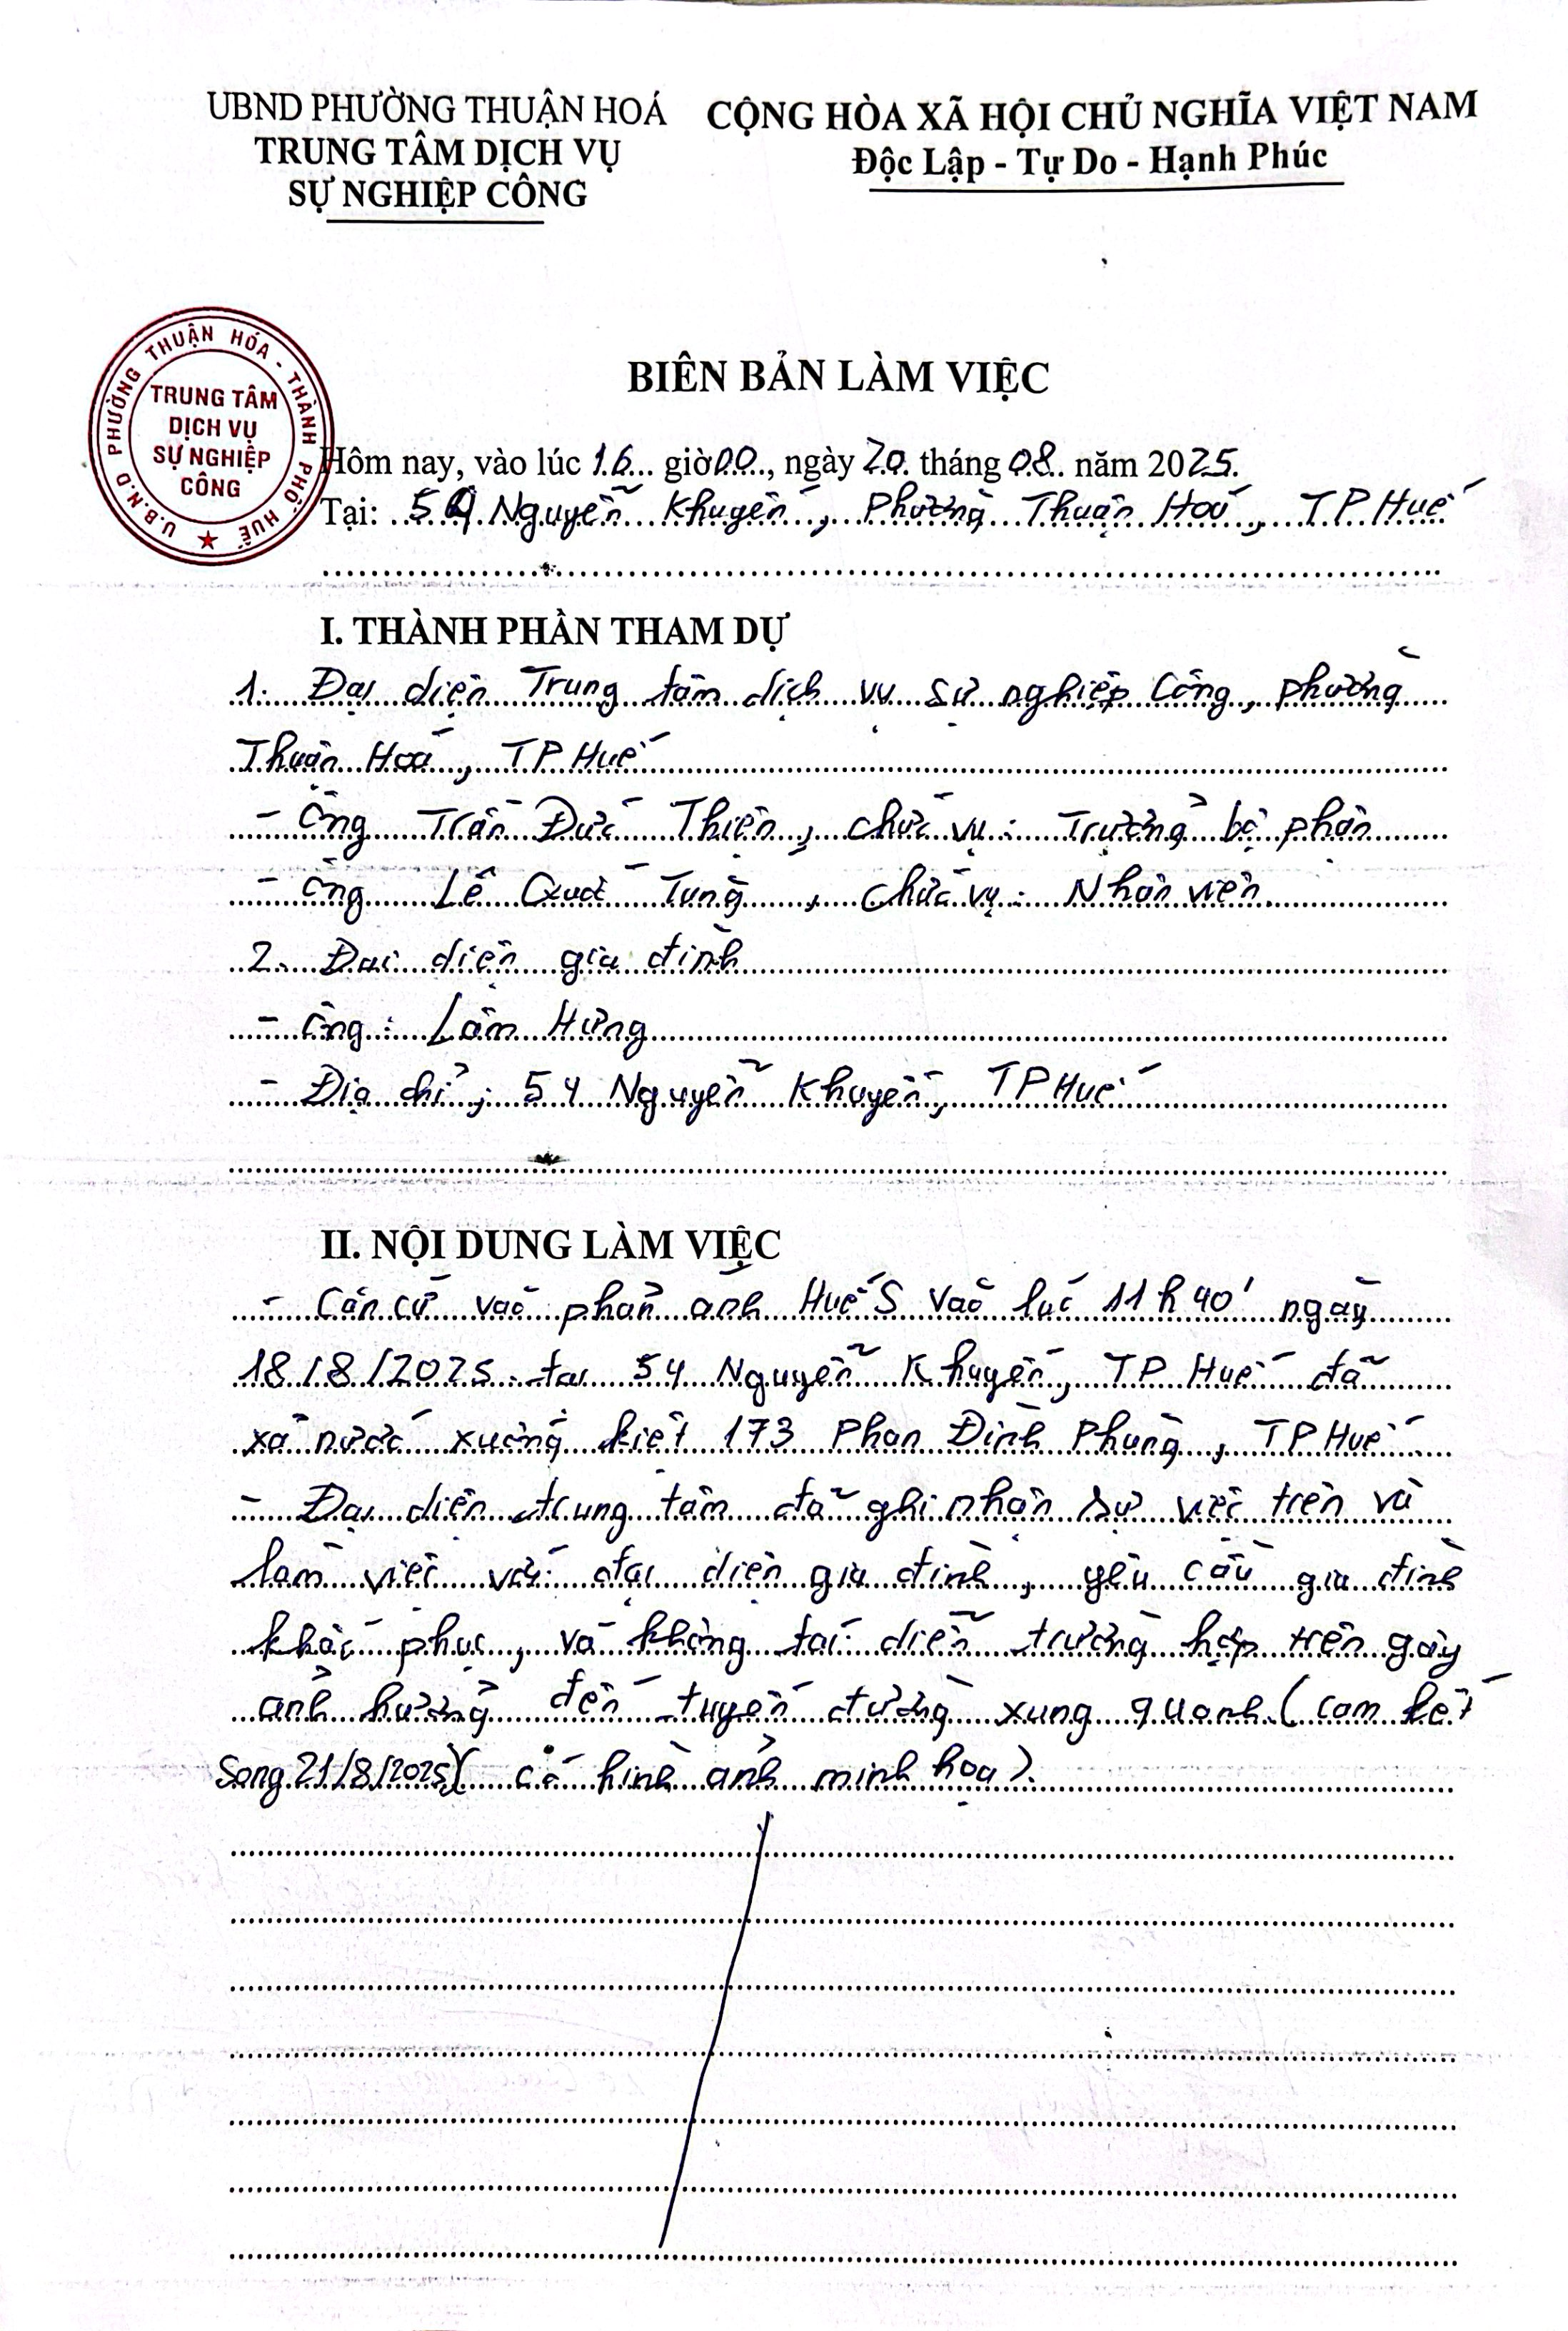 UBND PHƯỜNG THUẬN HOÁ
TRUNG TÂM DỊCH VỤ
SỰ NGHIỆP CÔNG
CỘNG HÒA XÃ HỘI CHỦ NGHĨA VIỆT NAM
Độc Lập - Tự Do - Hạnh Phúc
U.B.N.D PHƯỜNG THUẬN HÓA - THÀNH PHỐ HUẾ
TRUNG TÂM
DỊCH VỤ
SỰ NGHIỆP
CÔNG
BIÊN BẢN LÀM VIỆC
Hôm nay, vào lúc 16 giờ 00, ngày 20 tháng 08 năm 2025.
Tại: 54 Nguyễn Khuyến, Phường Thuận Hoá, TP Huế
I. THÀNH PHẦN THAM DỰ
1. Đại diện Trung tâm dịch vụ sự nghiệp Công, phường
Thuận Hoá, TP Huế
- Ông Trần Đức Thiện, chức vụ: Trưởng bộ phận
- Ông Lê Quốc Tùng, chức vụ: Nhân viên
2. Đại diện gia đình
- Ông: Lâm Hưng
- Địa chỉ: 54 Nguyễn Khuyến, TP Huế
II. NỘI DUNG LÀM VIỆC
- Căn cứ vào phản ánh Huế S vào lúc 11h40' ngày
18/8/2025 tại 54 Nguyễn Khuyến, TP Huế đã
xả nước xuống kiệt 173 Phan Đình Phùng, TP Huế
- Đại diện trung tâm đã ghi nhận sự việc trên và
làm việc với đại diện gia đình, yêu cầu gia đình
khắc phục, và không tái diễn trường hợp trên gây
ảnh hưởng đến tuyến đường xung quanh (cam kết
Sáng 21/8/2025) (có hình ảnh minh họa).